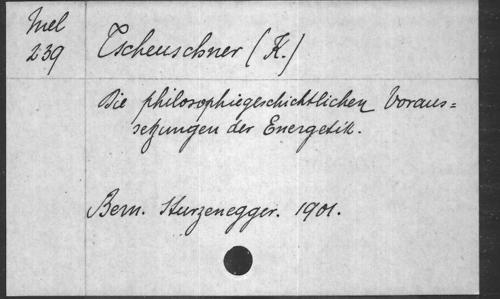 Mel
239
Tscheuschner (K.)
Die philosophiegeschichtlichen Voraus=
setzungen der Energetik.
Bern. Sturzenegger. 1901.